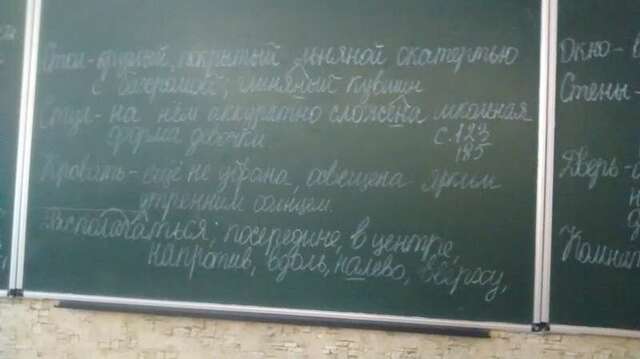 Стол - круглый, покрытый льняной скатертью
с бахромой; глиняный кувшин
Стул - на нём аккуратно сложена школьная
форма девочки. с. 123
185
Кровать - ещё не убрана, освещена ярким
утренним солнцем.
Располагаться; посередине, в центре,
напротив, вдоль, налево,
Окно -
Стены -
Дверь -
Комнат